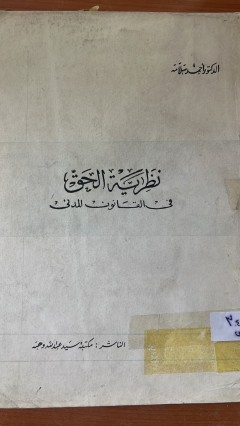 الدكتور أحمد سلامه
نظرية الحق
في القانون المدني
الناشر : مكتبة السيد عبدالله وهبه